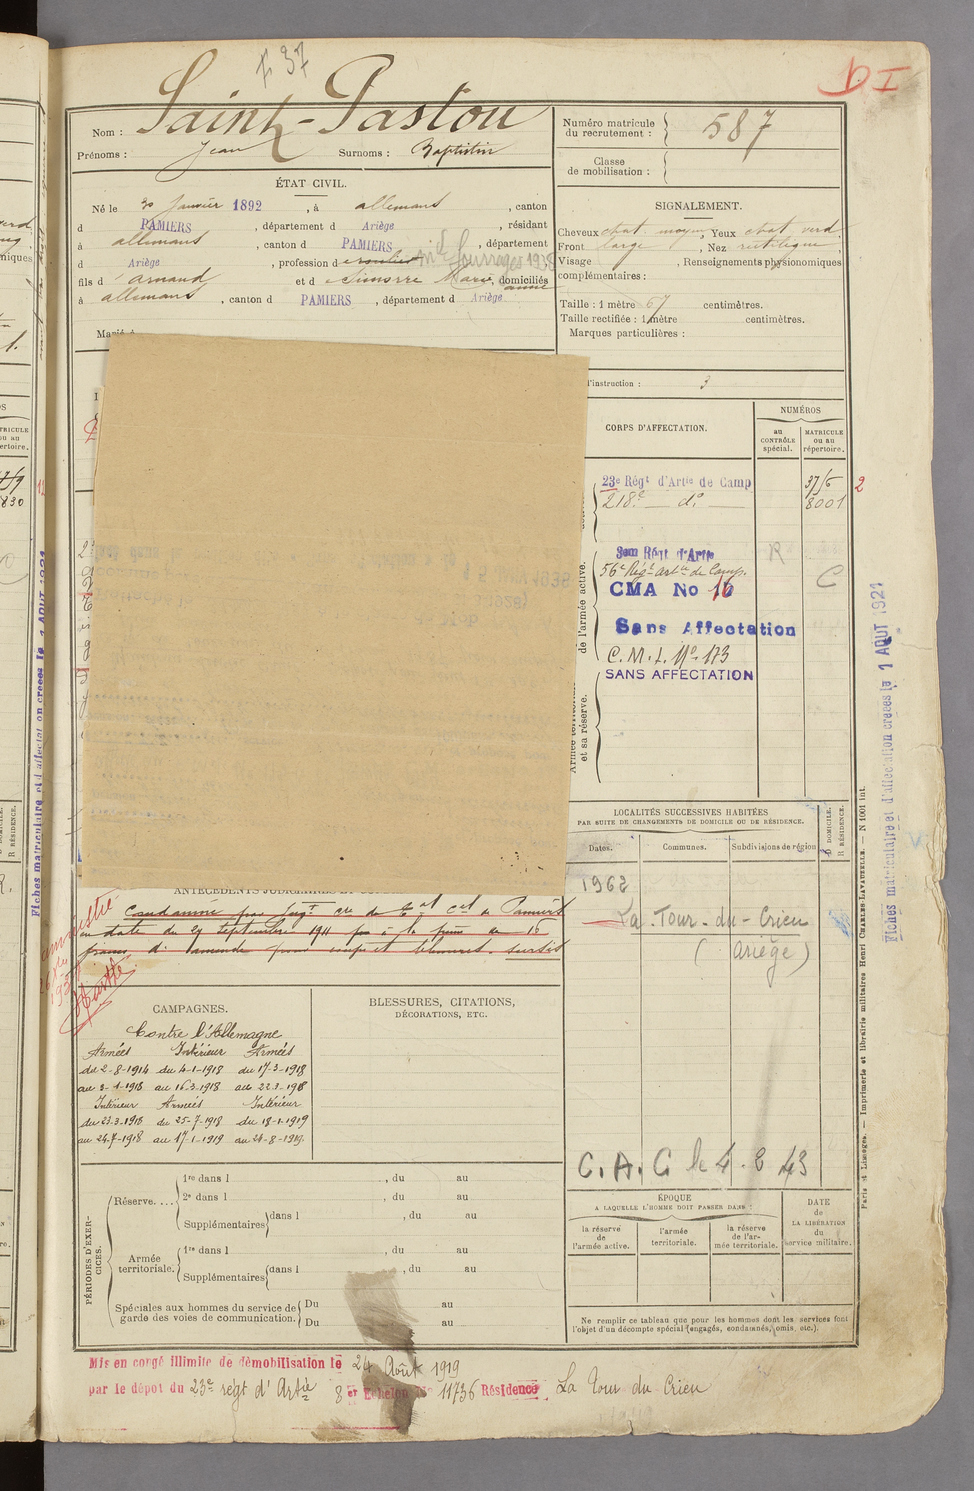 F 37
D I
Nom : Saint-Pastou
Prénoms : Jean Surnoms : Baptistin
Numéro matricule du recrutement : 587
Classe de mobilisation :
ÉTAT CIVIL.
Né le 30 Janvier 1892, à allemans, canton
d PAMIERS, département d Ariège, résidant
à allemans, canton d PAMIERS, département
d Ariège, profession d
fils d armand et d Simorre Marie, domiciliés
anne
à allemans, canton d PAMIERS, département d Ariège
Marié à
SIGNALEMENT.
Cheveux chat. moyen, Yeux chat verd
Front large, Nez rectiligne
Visage , Renseignements physionomiques
complémentaires :
Taille : 1 mètre 67 centimètres.
Taille rectifiée : 1 mètre centimètres.
Marques particulières :
d'instruction : 3
CORPS D'AFFECTATION.
NUMÉROS
au CONTRÔLE spécial.
MATRICULE ou au répertoire.
23e Régt d'Artie de Camp
218e — do —
8001
2
3em Régt d'Artie
56e Régt artie de Camp.
R
C
CMA No 16
Sans Affectation
C. M. I. No 173
SANS AFFECTATION
de l'armée active.
et sa réserve.
LOCALITÉS SUCCESSIVES HABITÉES
PAR SUITE DE CHANGEMENTS DE DOMICILE OU DE RÉSIDENCE.
Dates.
Communes.
Subdivisions de région
D DOMICILE.
R RÉSIDENCE.
1962
La Tour-du-Crieu
( Ariège )
ANTÉCÉDENTS JUDICIAIRES ET
Condamné par Jugt de Pamiers
en date du 29 Septembre 1911 à la peine de 16
francs d'amende pour coups et blessures. sursis
CAMPAGNES.
Contre l'Allemagne
Armées Intérieur Armées
du 2-8-1914 du 4-1-1918 du 17-3-1918
au 3-1-1918 au 16-3-1918 au 22-3-1918
Intérieur Armées Intérieur
du 23-3-1918 du 25-7-1918 du 18-1-1919
au 24-7-1918 au 17-1-1919 au 24-8-1919
BLESSURES, CITATIONS,
DÉCORATIONS, ETC.
C.A.C. le 4.8 43
PÉRIODES D'EXERCICES.
Réserve....
1re dans l , du au
2e dans l , du au
Supplémentaires dans l , du au
Armée territoriale.
1re dans l , du au
Supplémentaires dans l , du au
Spéciales aux hommes du service de garde des voies de communication.
Du au
Du au
ÉPOQUE
A LAQUELLE L'HOMME DOIT PASSER DANS :
la réserve de l'armée active.
l'armée territoriale.
la réserve de l'armée territoriale.
DATE de LA LIBÉRATION du service militaire.
Ne remplir ce tableau que pour les hommes dont les services font
l'objet d'un décompte spécial (engagés, condamnés, omis, etc.).
Mis en congé illimité de démobilisation le 24 Août 1919
par le dépôt du 23e régt d'Artie 8 et Echelon No 11736 Résidence La Tour du Crieu
Fiches matriculaire et d'affectation créées le 1 AOUT 1921
Fiches matriculaire et d'affectation créées le 1 AOUT 1921
Paris et Limoges. — Imprimerie et librairie militaires Henri CHARLES-LAVAUZELLE. — N 1001 int.